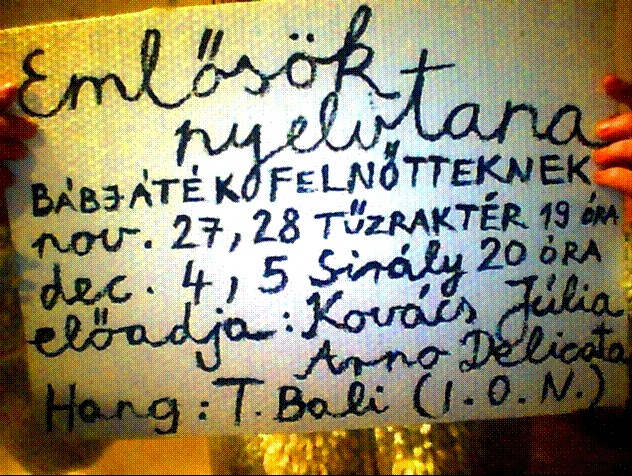 Emlősök
nyelvtana
BÁBJÁTÉK FELNŐTTEKNEK
nov. 27, 28 TŰZRAKTÉR 19 ÓRA
dec. 4, 5 Sirály 20 ÓRA
előadja: Kovács Júlia
Arno Delicata
Hang: T. Bali (I.O.N.)